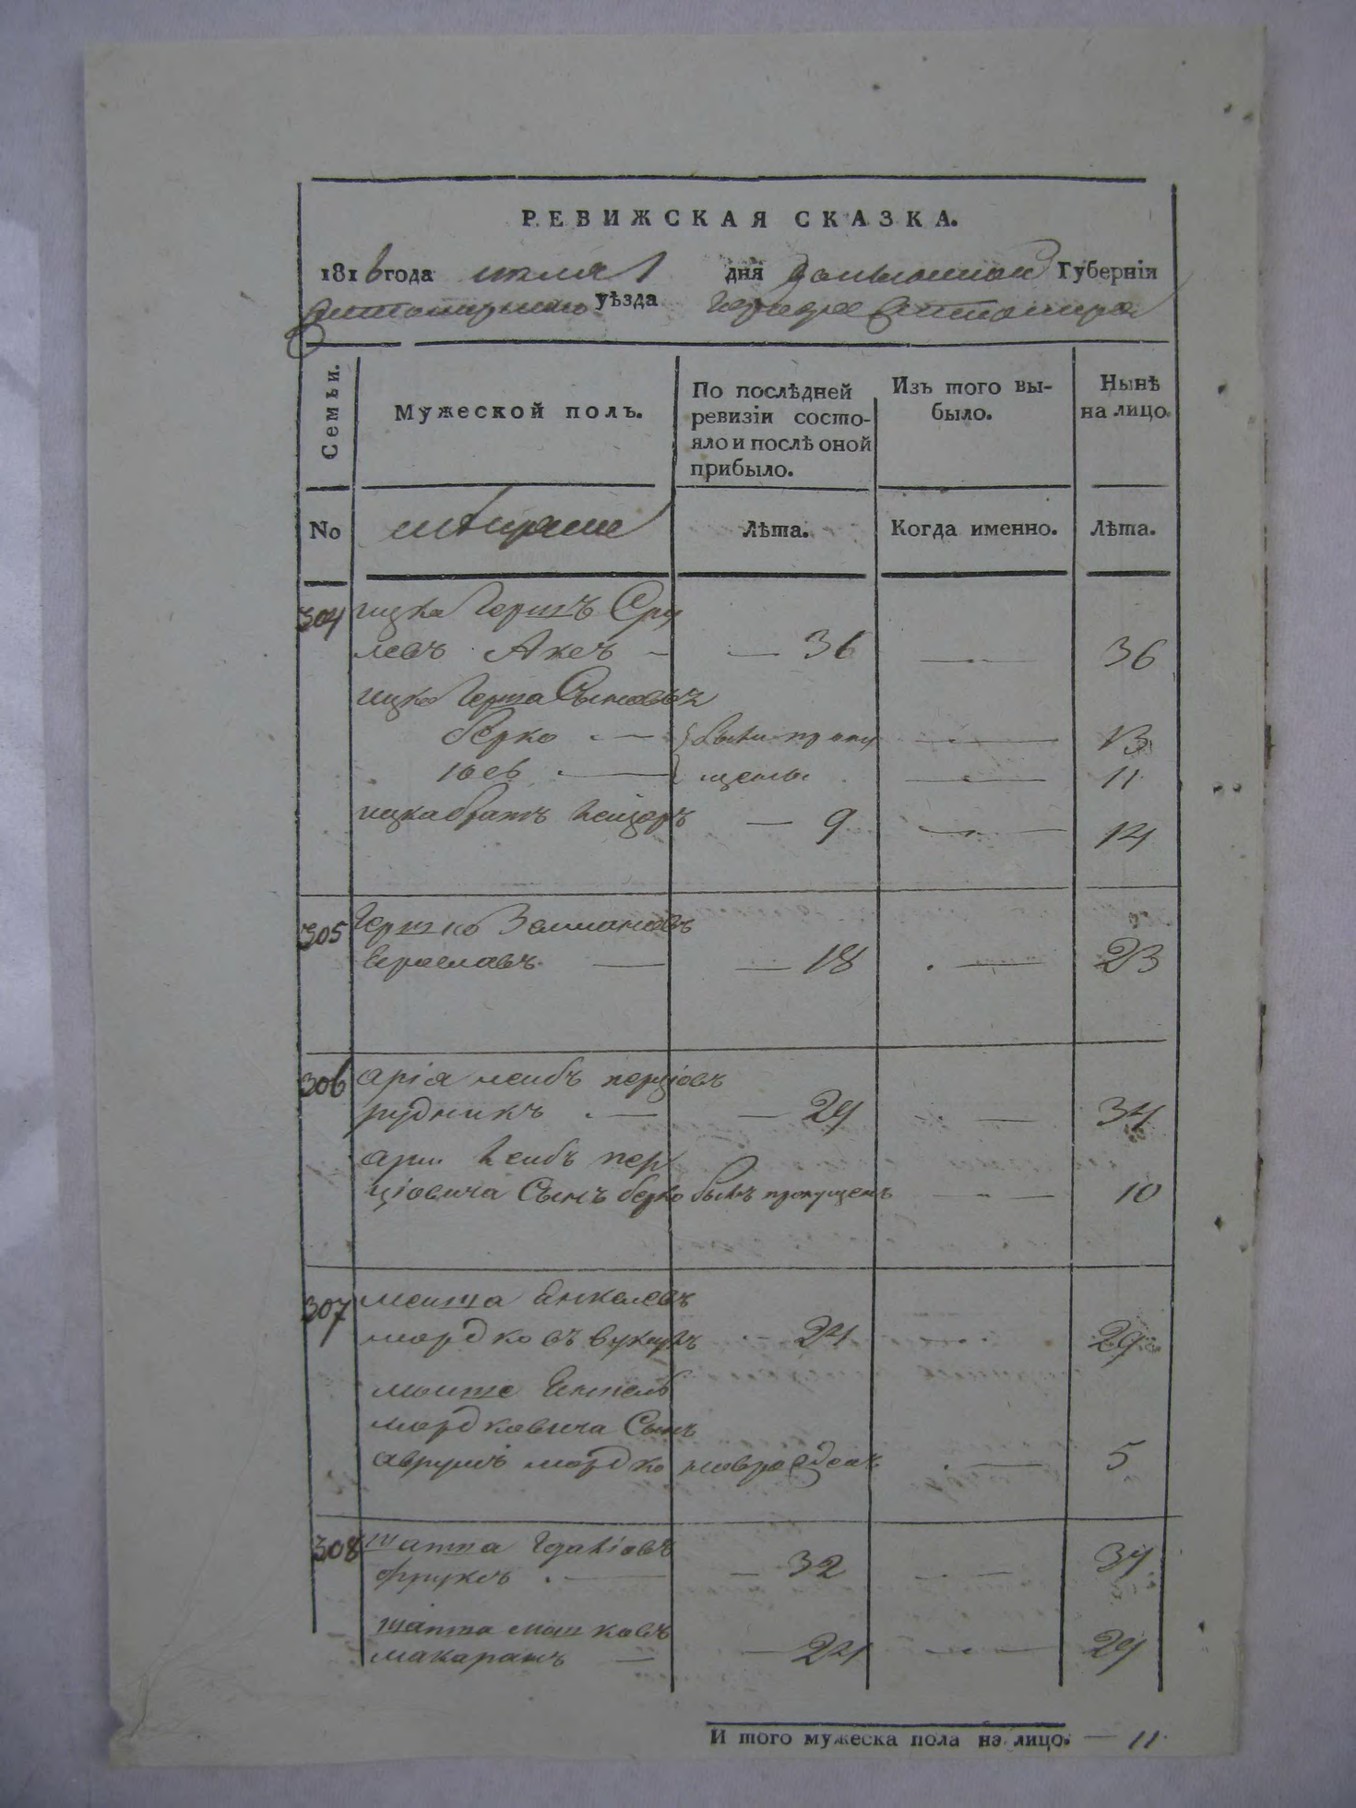 РЕВИЖСКАЯ СКАЗКА.
1816 года июля 1 дня Волынской Губернїи
Житомирского уѣзда Города Житомира
Семьи.
Мужеской полъ.
По послѣдней
ревизїи состо-
яло и послѣ оной
прибыло.
Изъ того вы-
было.
Нынѣ
на лицо.
No
Лѣта.
Когда именно.
Лѣта.
304 ицка Гершъ Сру
левъ — 36 — 36
ицко Герша Сыновья
берко — были пропу — 13
— щены — 11
ицка братъ Лейзоръ — 9 — 14
305 Гершко Залмановъ
— 18 — 23
306 арїя Леибъ перцїовъ
рудникъ — 29 — 34
арїи Леибъ пер
цїовича Сынъ берко былъ пропущенъ — 10
307 Моиша Янкелевъ
мордковъ — 24 — 29
моише Янкель
мордковича Сынъ
аврумъ мордко новорожденъ — 5
308 Шапша
— 32 — 37
шапша мошковъ
макаранъ — 24 — 29
И того мужеска пола на лицо. — 11.